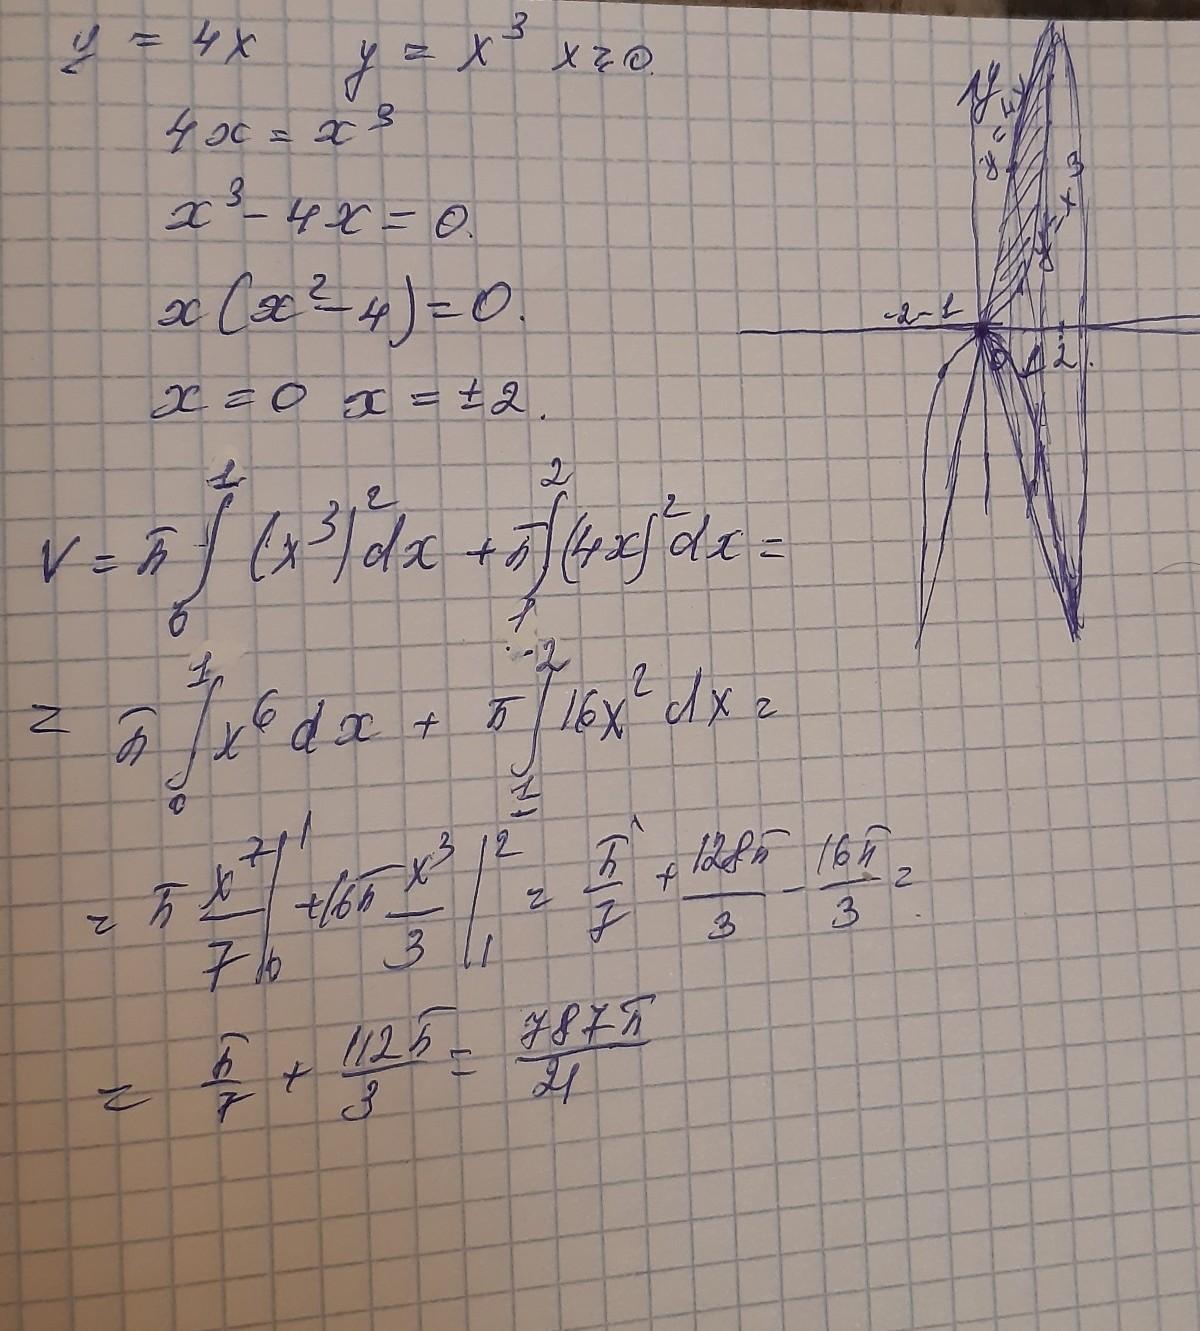 y = 4x   y = x³   x ≥ 0.
4x = x³
x³ - 4x = 0.
x(x² - 4) = 0.
x = 0   x = ±2.
V = π∫₀¹ (x³)² dx + π∫₁² (4x)² dx =
= π∫₀¹ x⁶ dx + π∫₁² 16x² dx =
= π x⁷/7 |₀¹ + 16π x³/3 |₁² = π/7 + 128π/3 - 16π/3 =
= π/7 + 112π/3 = 787π/21
y
-2 -1 0 1 2